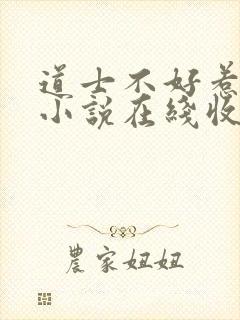 道士不好惹
小說在綫收
農家妞妞